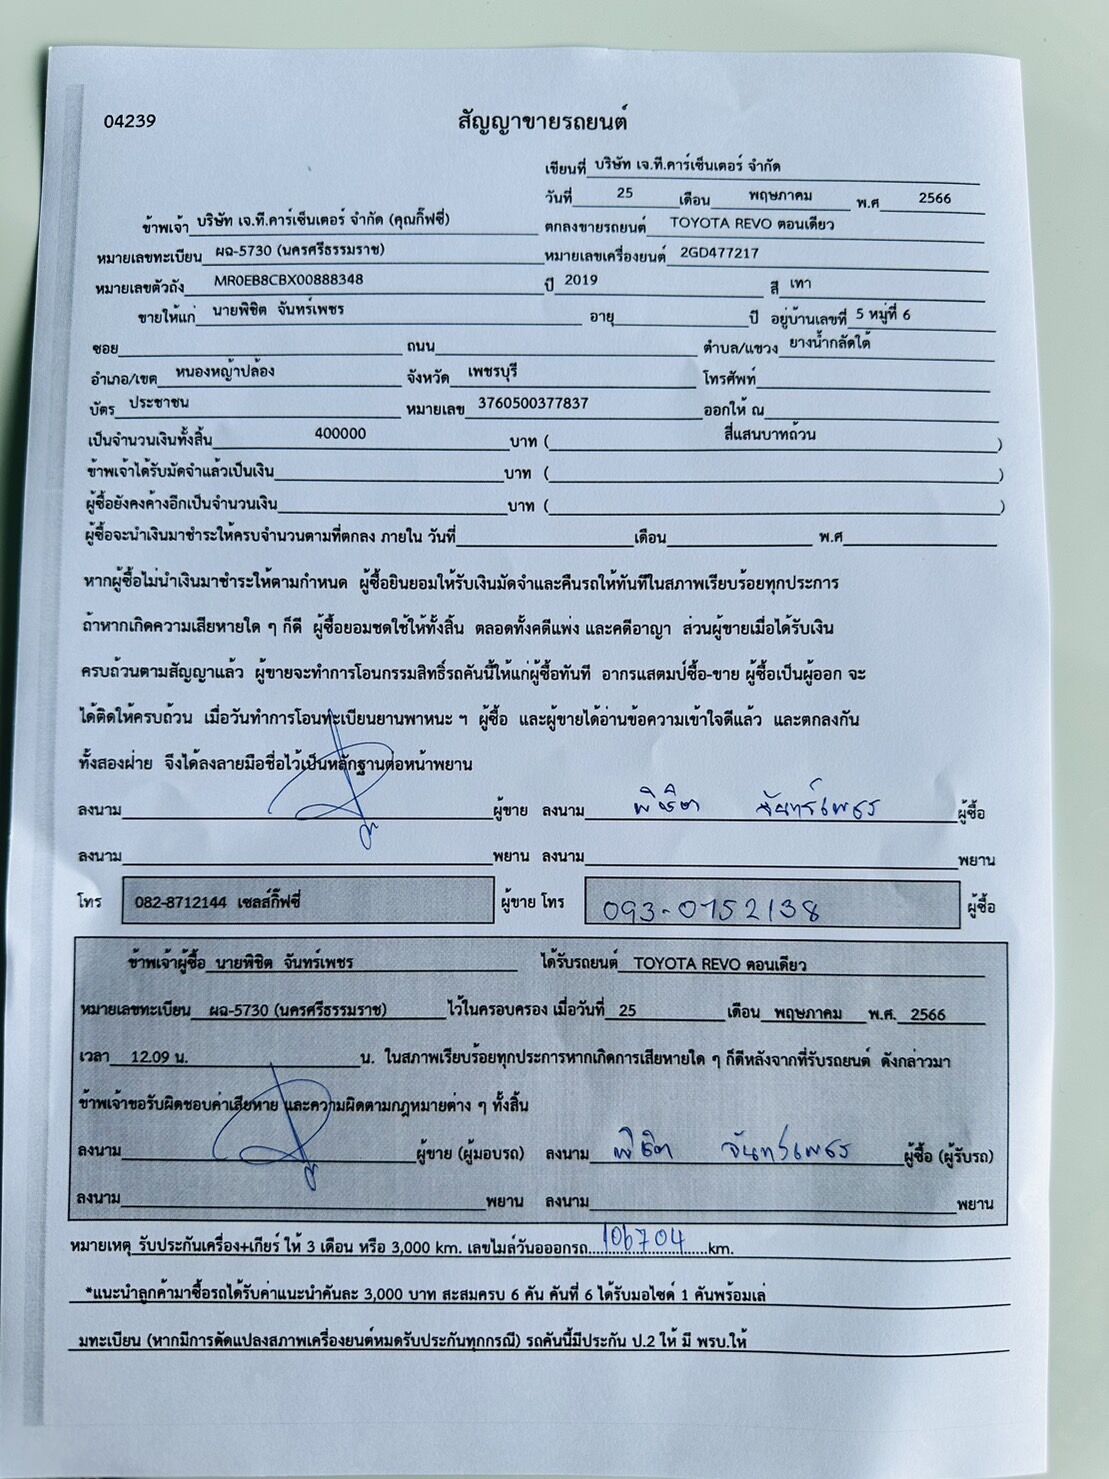 04239
สัญญาขายรถยนต์
เขียนที่ บริษัท เจ.ที.คาร์เซ็นเตอร์ จำกัด
วันที่ 25 เดือน พฤษภาคม พ.ศ 2566
ข้าพเจ้า บริษัท เจ.ที.คาร์เซ็นเตอร์ จำกัด (คุณกิ๊ฟซี่) ตกลงขายรถยนต์ TOYOTA REVO ตอนเดียว
หมายเลขทะเบียน ผฉ-5730 (นครศรีธรรมราช) หมายเลขเครื่องยนต์ 2GD477217
หมายเลขตัวถัง MR0EB8CBX00888348 ปี 2019 สี เทา
ขายให้แก่ นายพิชิต จันทร์เพชร อายุ ปี อยู่บ้านเลขที่ 5 หมู่ที่ 6
ซอย ถนน ตำบล/แขวง ยางน้ำกลัดใต้
อำเภอ/เขต หนองหญ้าปล้อง จังหวัด เพชรบุรี โทรศัพท์
บัตร ประชาชน หมายเลข 3760500377837 ออกให้ ณ
เป็นจำนวนเงินทั้งสิ้น 400000 บาท ( สี่แสนบาทถ้วน )
ข้าพเจ้าได้รับมัดจำแล้วเป็นเงิน บาท ( )
ผู้ซื้อยังคงค้างอีกเป็นจำนวนเงิน บาท ( )
ผู้ซื้อจะนำเงินมาชำระให้ครบจำนวนตามที่ตกลง ภายใน วันที่ เดือน พ.ศ
หากผู้ซื้อไม่นำเงินมาชำระให้ตามกำหนด ผู้ซื้อยินยอมให้รับเงินมัดจำและคืนรถให้ทันทีในสภาพเรียบร้อยทุกประการ
ถ้าหากเกิดความเสียหายใด ๆ ก็ดี ผู้ซื้อยอมชดใช้ให้ทั้งสิ้น ตลอดทั้งคดีแพ่ง และคดีอาญา ส่วนผู้ขายเมื่อได้รับเงิน
ครบถ้วนตามสัญญาแล้ว ผู้ขายจะทำการโอนกรรมสิทธิ์รถคันนี้ให้แก่ผู้ซื้อทันที อากรแสตมป์ซื้อ-ขาย ผู้ซื้อเป็นผู้ออก จะ
ได้ติดให้ครบถ้วน เมื่อวันทำการโอนทะเบียนยานพาหนะ ฯ ผู้ซื้อ และผู้ขายได้อ่านข้อความเข้าใจดีแล้ว และตกลงกัน
ทั้งสองฝ่าย จึงได้ลงลายมือชื่อไว้เป็นหลักฐานต่อหน้าพยาน
ลงนาม ผู้ขาย ลงนาม พิชิต จันทร์เพชร ผู้ซื้อ
ลงนาม พยาน ลงนาม พยาน
โทร 082-8712144 เซลส์กิ๊ฟซี่ ผู้ขาย โทร 093-0752138 ผู้ซื้อ
ข้าพเจ้าผู้ซื้อ นายพิชิต จันทร์เพชร ได้รับรถยนต์ TOYOTA REVO ตอนเดียว
หมายเลขทะเบียน ผฉ-5730 (นครศรีธรรมราช) ไว้ในครอบครอง เมื่อวันที่ 25 เดือน พฤษภาคม พ.ศ. 2566
เวลา 12.09 น. น. ในสภาพเรียบร้อยทุกประการหากเกิดการเสียหายใด ๆ ก็ดีหลังจากที่รับรถยนต์ ดังกล่าวมา
ข้าพเจ้าขอรับผิดชอบค่าเสียหาย และความผิดตามกฎหมายต่าง ๆ ทั้งสิ้น
ลงนาม ผู้ขาย (ผู้มอบรถ) ลงนาม พิชิต จันทร์เพชร ผู้ซื้อ (ผู้รับรถ)
ลงนาม พยาน ลงนาม พยาน
หมายเหตุ รับประกันเครื่อง+เกียร์ ให้ 3 เดือน หรือ 3,000 km. เลขไมล์วันอออกรถ 106704 km.
*แนะนำลูกค้ามาซื้อรถได้รับค่าแนะนำคันละ 3,000 บาท สะสมครบ 6 คัน คันที่ 6 ได้รับมอไซด์ 1 คันพร้อมเล่
มทะเบียน (หากมีการดัดแปลงสภาพเครื่องยนต์หมดรับประกันทุกกรณี) รถคันนี้มีประกัน ป.2 ให้ มี พรบ.ให้